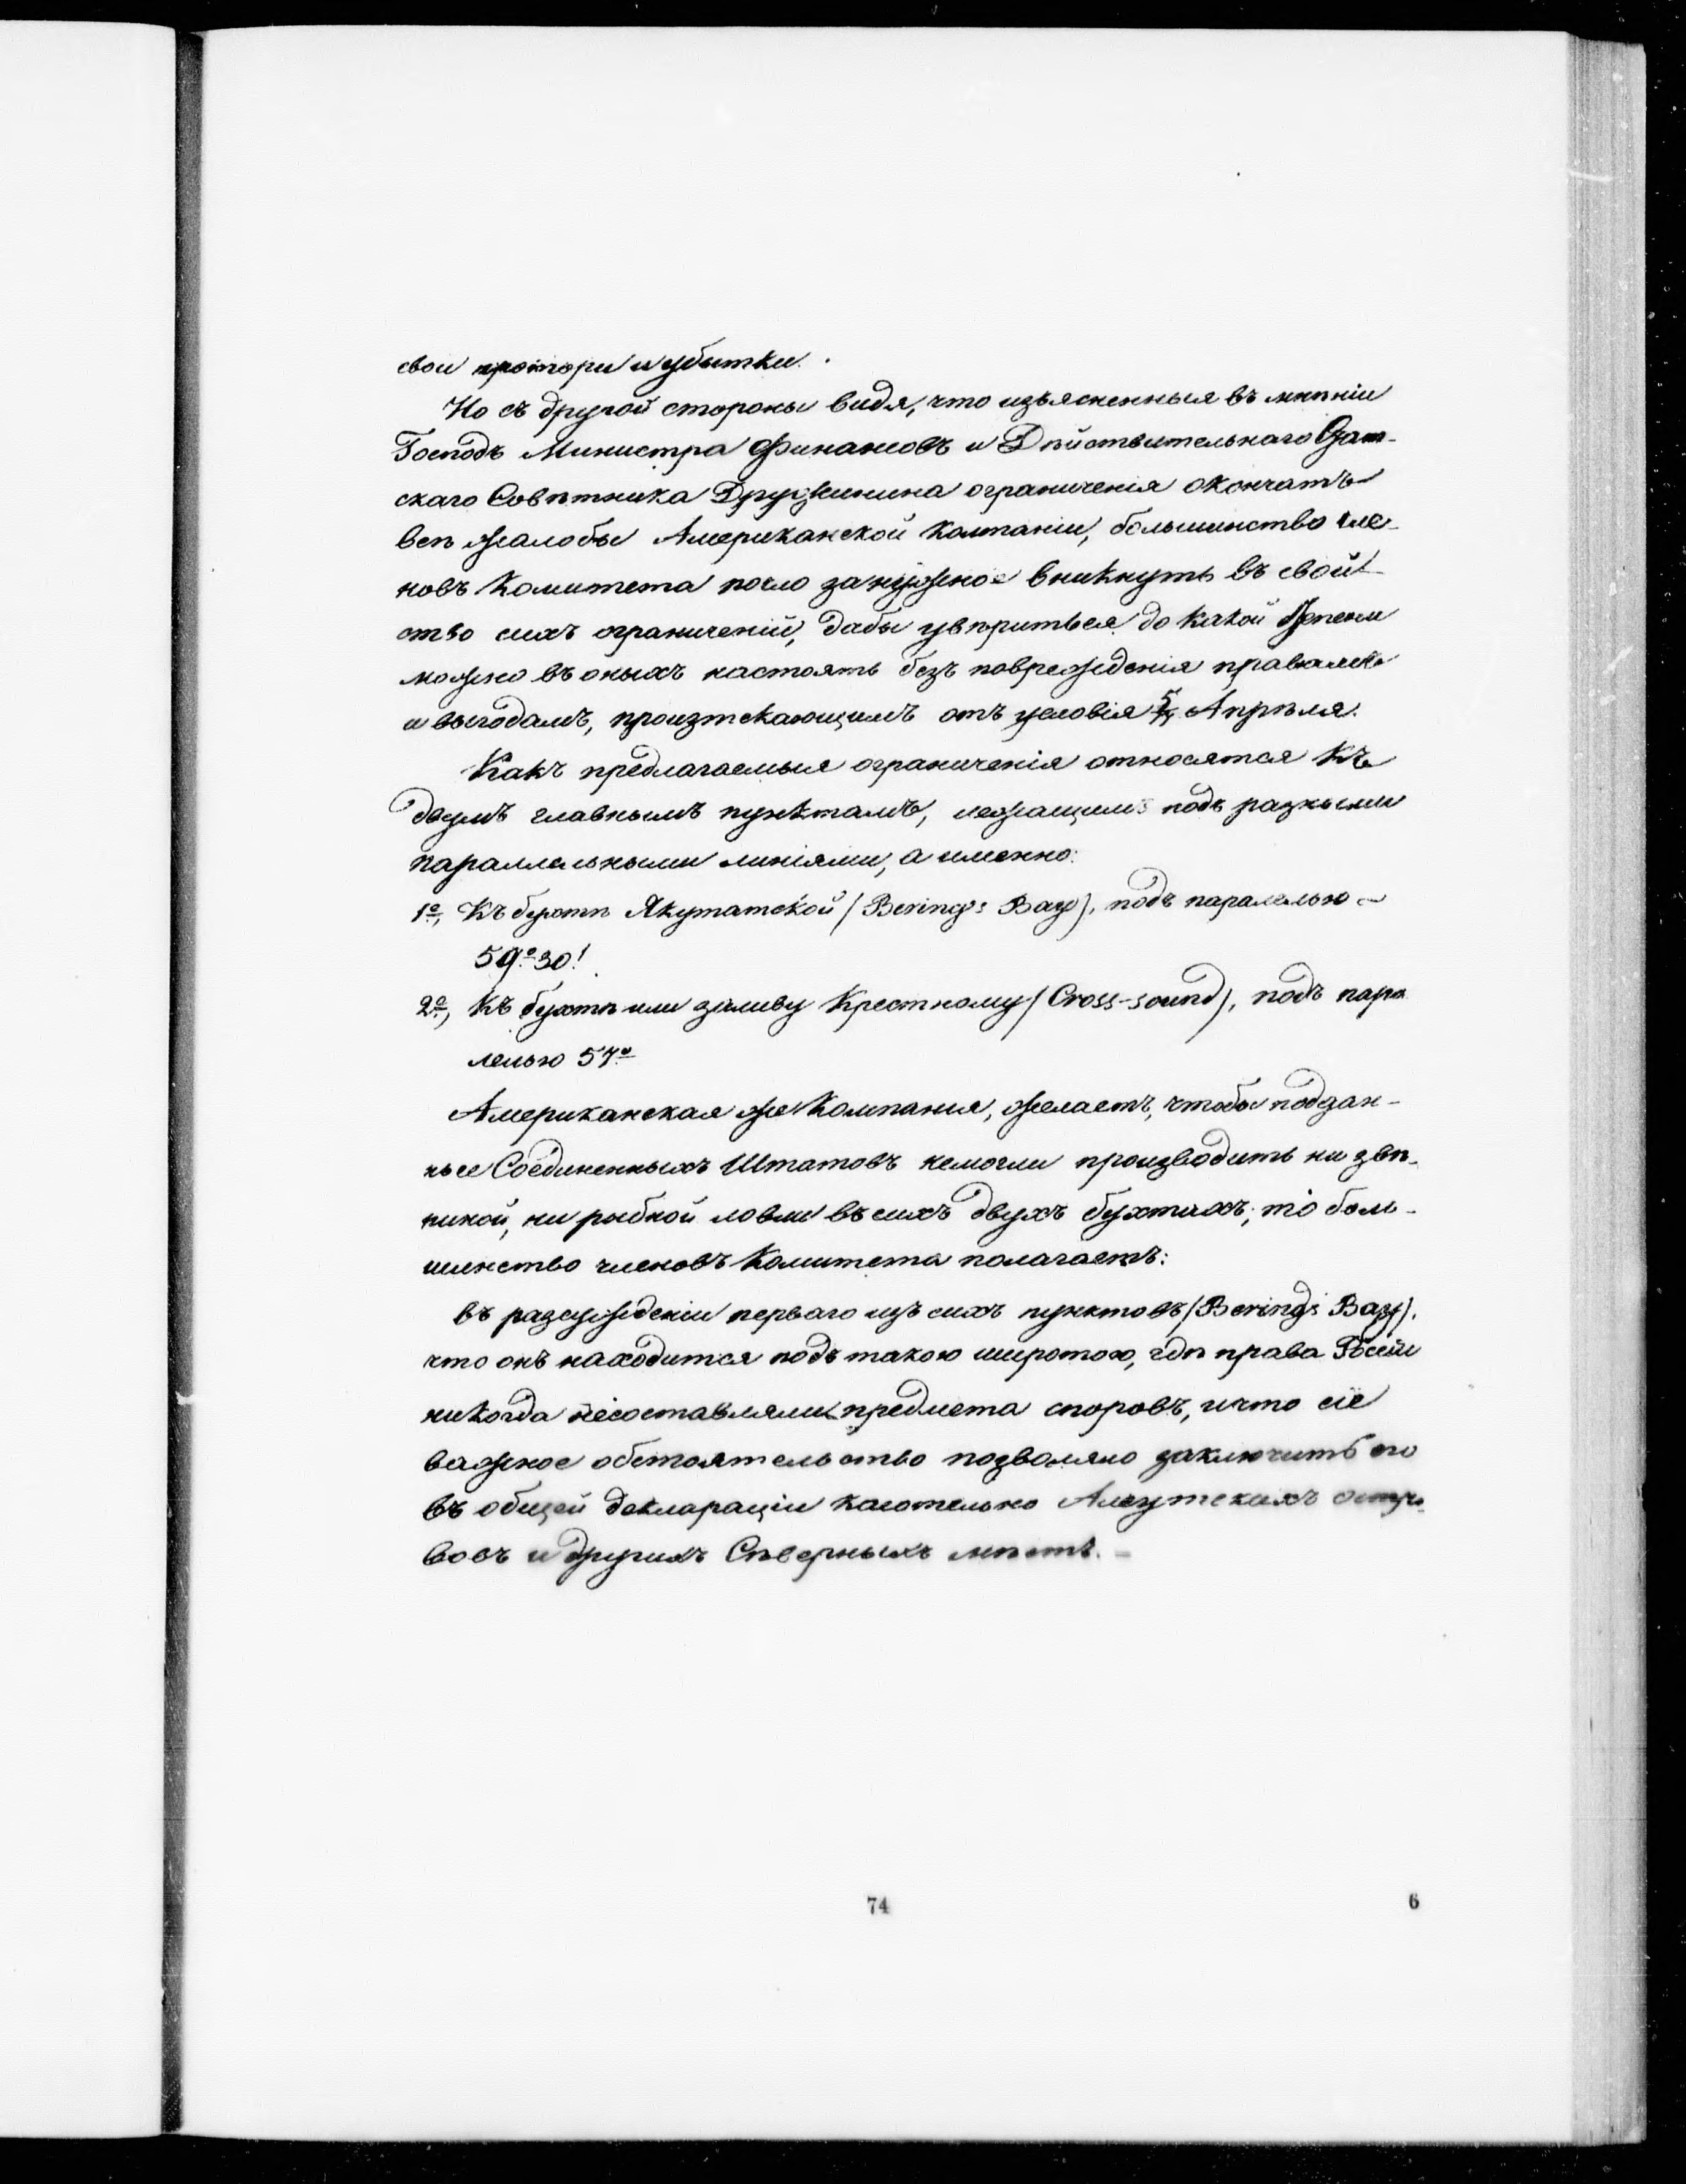 свои протори и убытки.
Но съ другой стороны видя, что изъясненныя въ мнѣніи
Господъ Министра Финансовъ и Дѣйствительнаго Стат-
скаго Совѣтника Дружинина ограниченія окончатъ
всѣ жалобы Американской Компаніи, большинство чле-
новъ Комитета почло за нужное вникнуть въ свой-
ство сихъ ограниченій, дабы увѣриться до какой степени
можно въ оныхъ настоять безъ поврежденія правамъ
и выгодамъ, проистекающимъ отъ условія 5/17 Апрѣля.
Какъ предлагаемыя ограниченія относятся къ
двумъ главнымъ пунктамъ, лежащимъ подъ разными
параллельными линіями, а именно:
1е, Къ бухтѣ Якутатской (Bering's Bay), подъ паралелью
59°30'.
2е, Къ бухтѣ или заливу Крестному (Cross-sound), подъ пара
лелью 57°
Американская же Компанія, желаетъ, чтобы поддан-
ные Соединенныхъ Штатовъ немогли производить ни звѣ-
риной, ни рыбной ловли въ сихъ двухъ бухтахъ; то боль-
шинство членовъ Комитета полагаетъ:
въ разсужденіи перваго изъ сихъ пунктовъ (Bering's Bay),
что онъ находится подъ такою широтою, гдѣ права Россіи
никогда несоставляли предмета споровъ, и что сіе
важное обстоятельство позволяло заключить его
въ общей декларации касательно Алеутскихъ остро-
вовъ и другихъ Сѣверныхъ мѣстъ. –
74
6